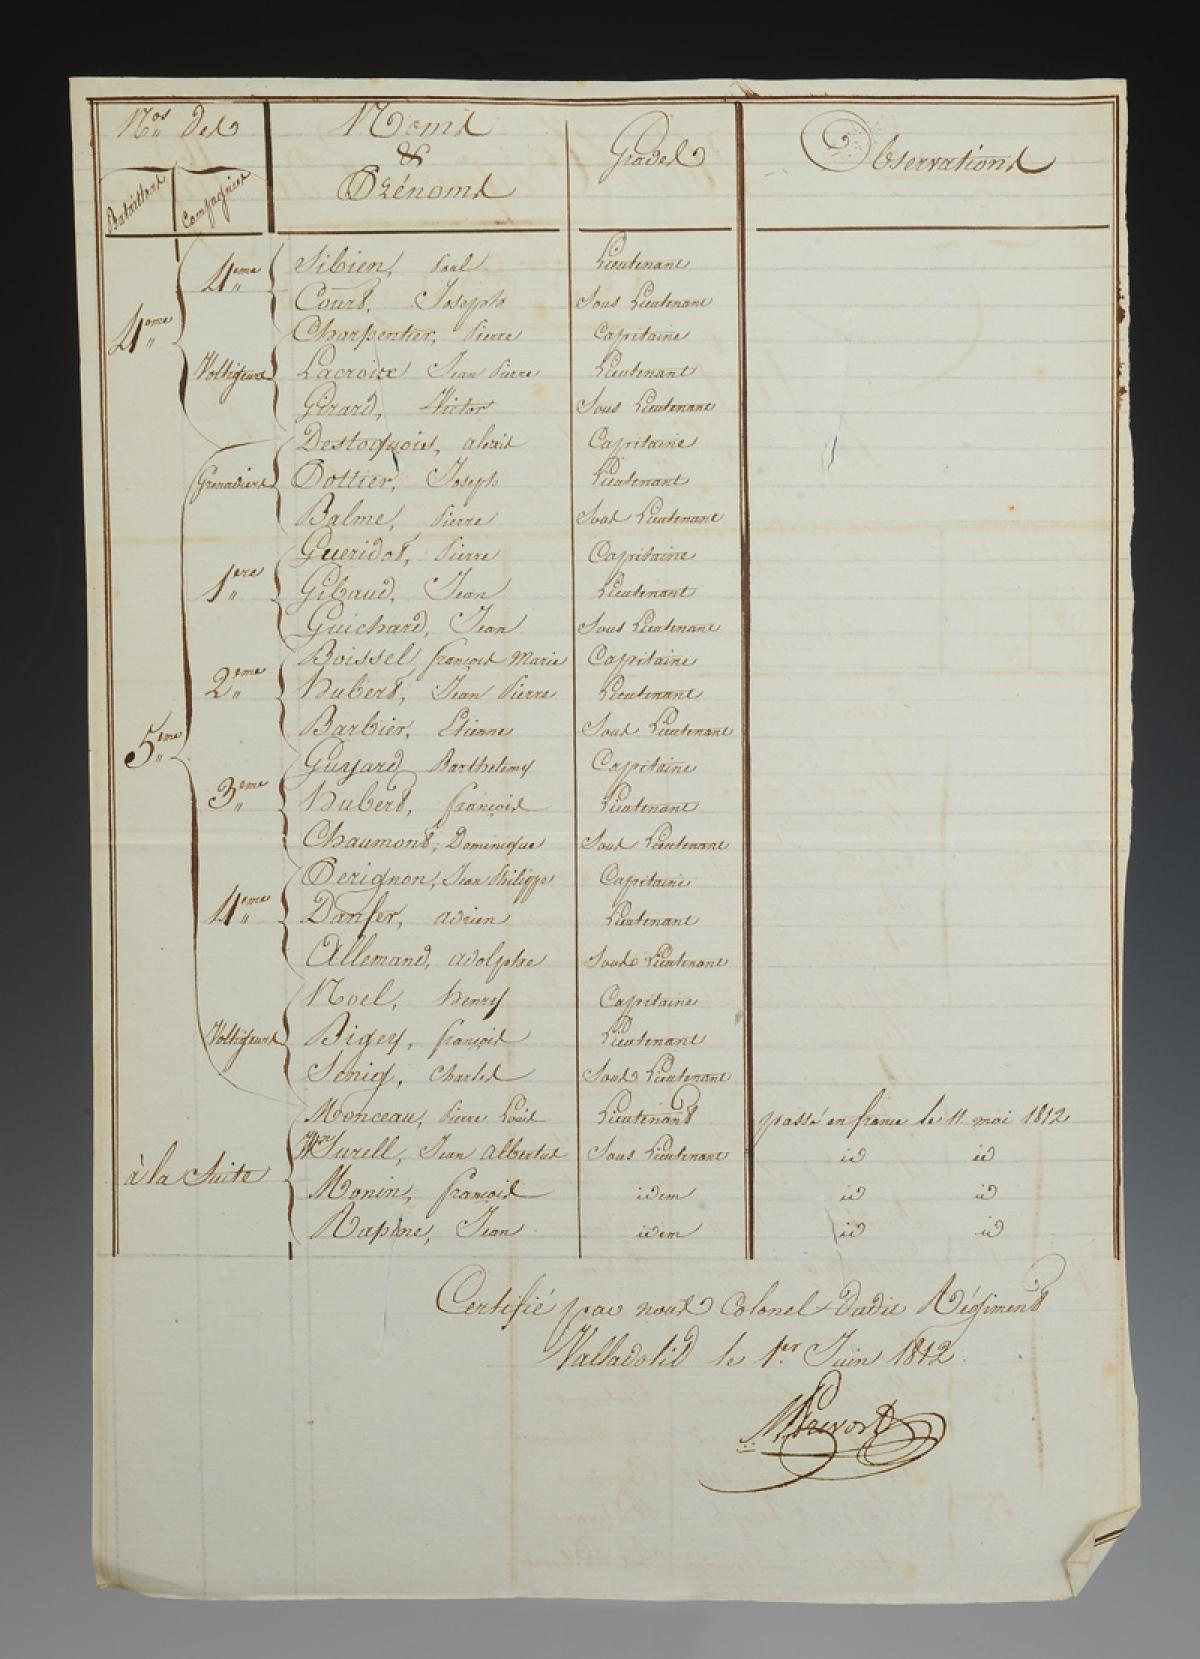 Nos des
Bataillons
Compagnies
Noms
&
Prénoms
Grades
Observations
4eme
4eme
Sibien, Paul Lieutenant
Court, Joseph Sous Lieutenant
Voltigeurs
Charpentier, Pierre Capitaine
Lacroix Jean Pierre Lieutenant
Girard, Victor Sous Lieutenant
5eme
Grenadiers
Destoquois, alexis Capitaine
Pottier, Joseph Lieutenant
Balme, Pierre Sous Lieutenant
1ere
Gueridot, Pierre Capitaine
Gibaud, Jean Lieutenant
Guichard, Jean Sous Lieutenant
2eme
Boissel, françois Marie Capitaine
hubert, Jean Pierre Lieutenant
Barbier, Etienne Sous Lieutenant
3eme
Guyard Barthelemy Capitaine
hubert, françois Lieutenant
Chaumont, Dominique Sous Lieutenant
4eme
Perignon, Jean Philippe Capitaine
Danfer, adrien Lieutenant
Allemand, adolphe Sous Lieutenant
Voltigeurs
Noel, henry Capitaine
Bigey, françois Lieutenant
Senig, Charles Sous Lieutenant
à la Suite
Monceau, Pierre Louis Lieutenant passé en france le 11 mai 1812
Surell, Jean albertus Sous Lieutenant id id
Monin, françois idem id id
Rapine, Jean idem id id
Certifié par nous Colonel dudit Régiment
Valladolid le 1er Juin 1812.
Prevost